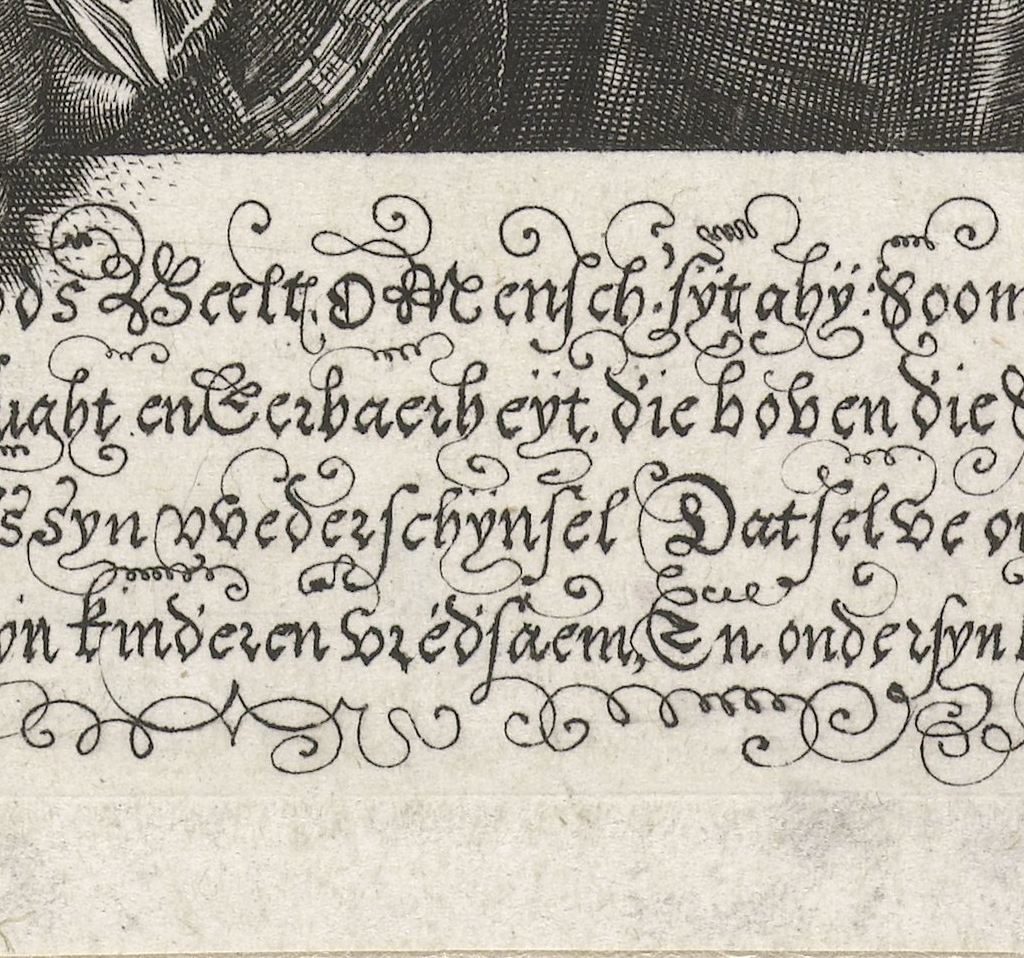 ods Beelt. O Mensch: sÿt ghÿ: Soom
ught en Eerbaerheÿt, die boven die
s syn wederschÿnsel Datselve on
yn kinderen vredsaem, En ondersyn